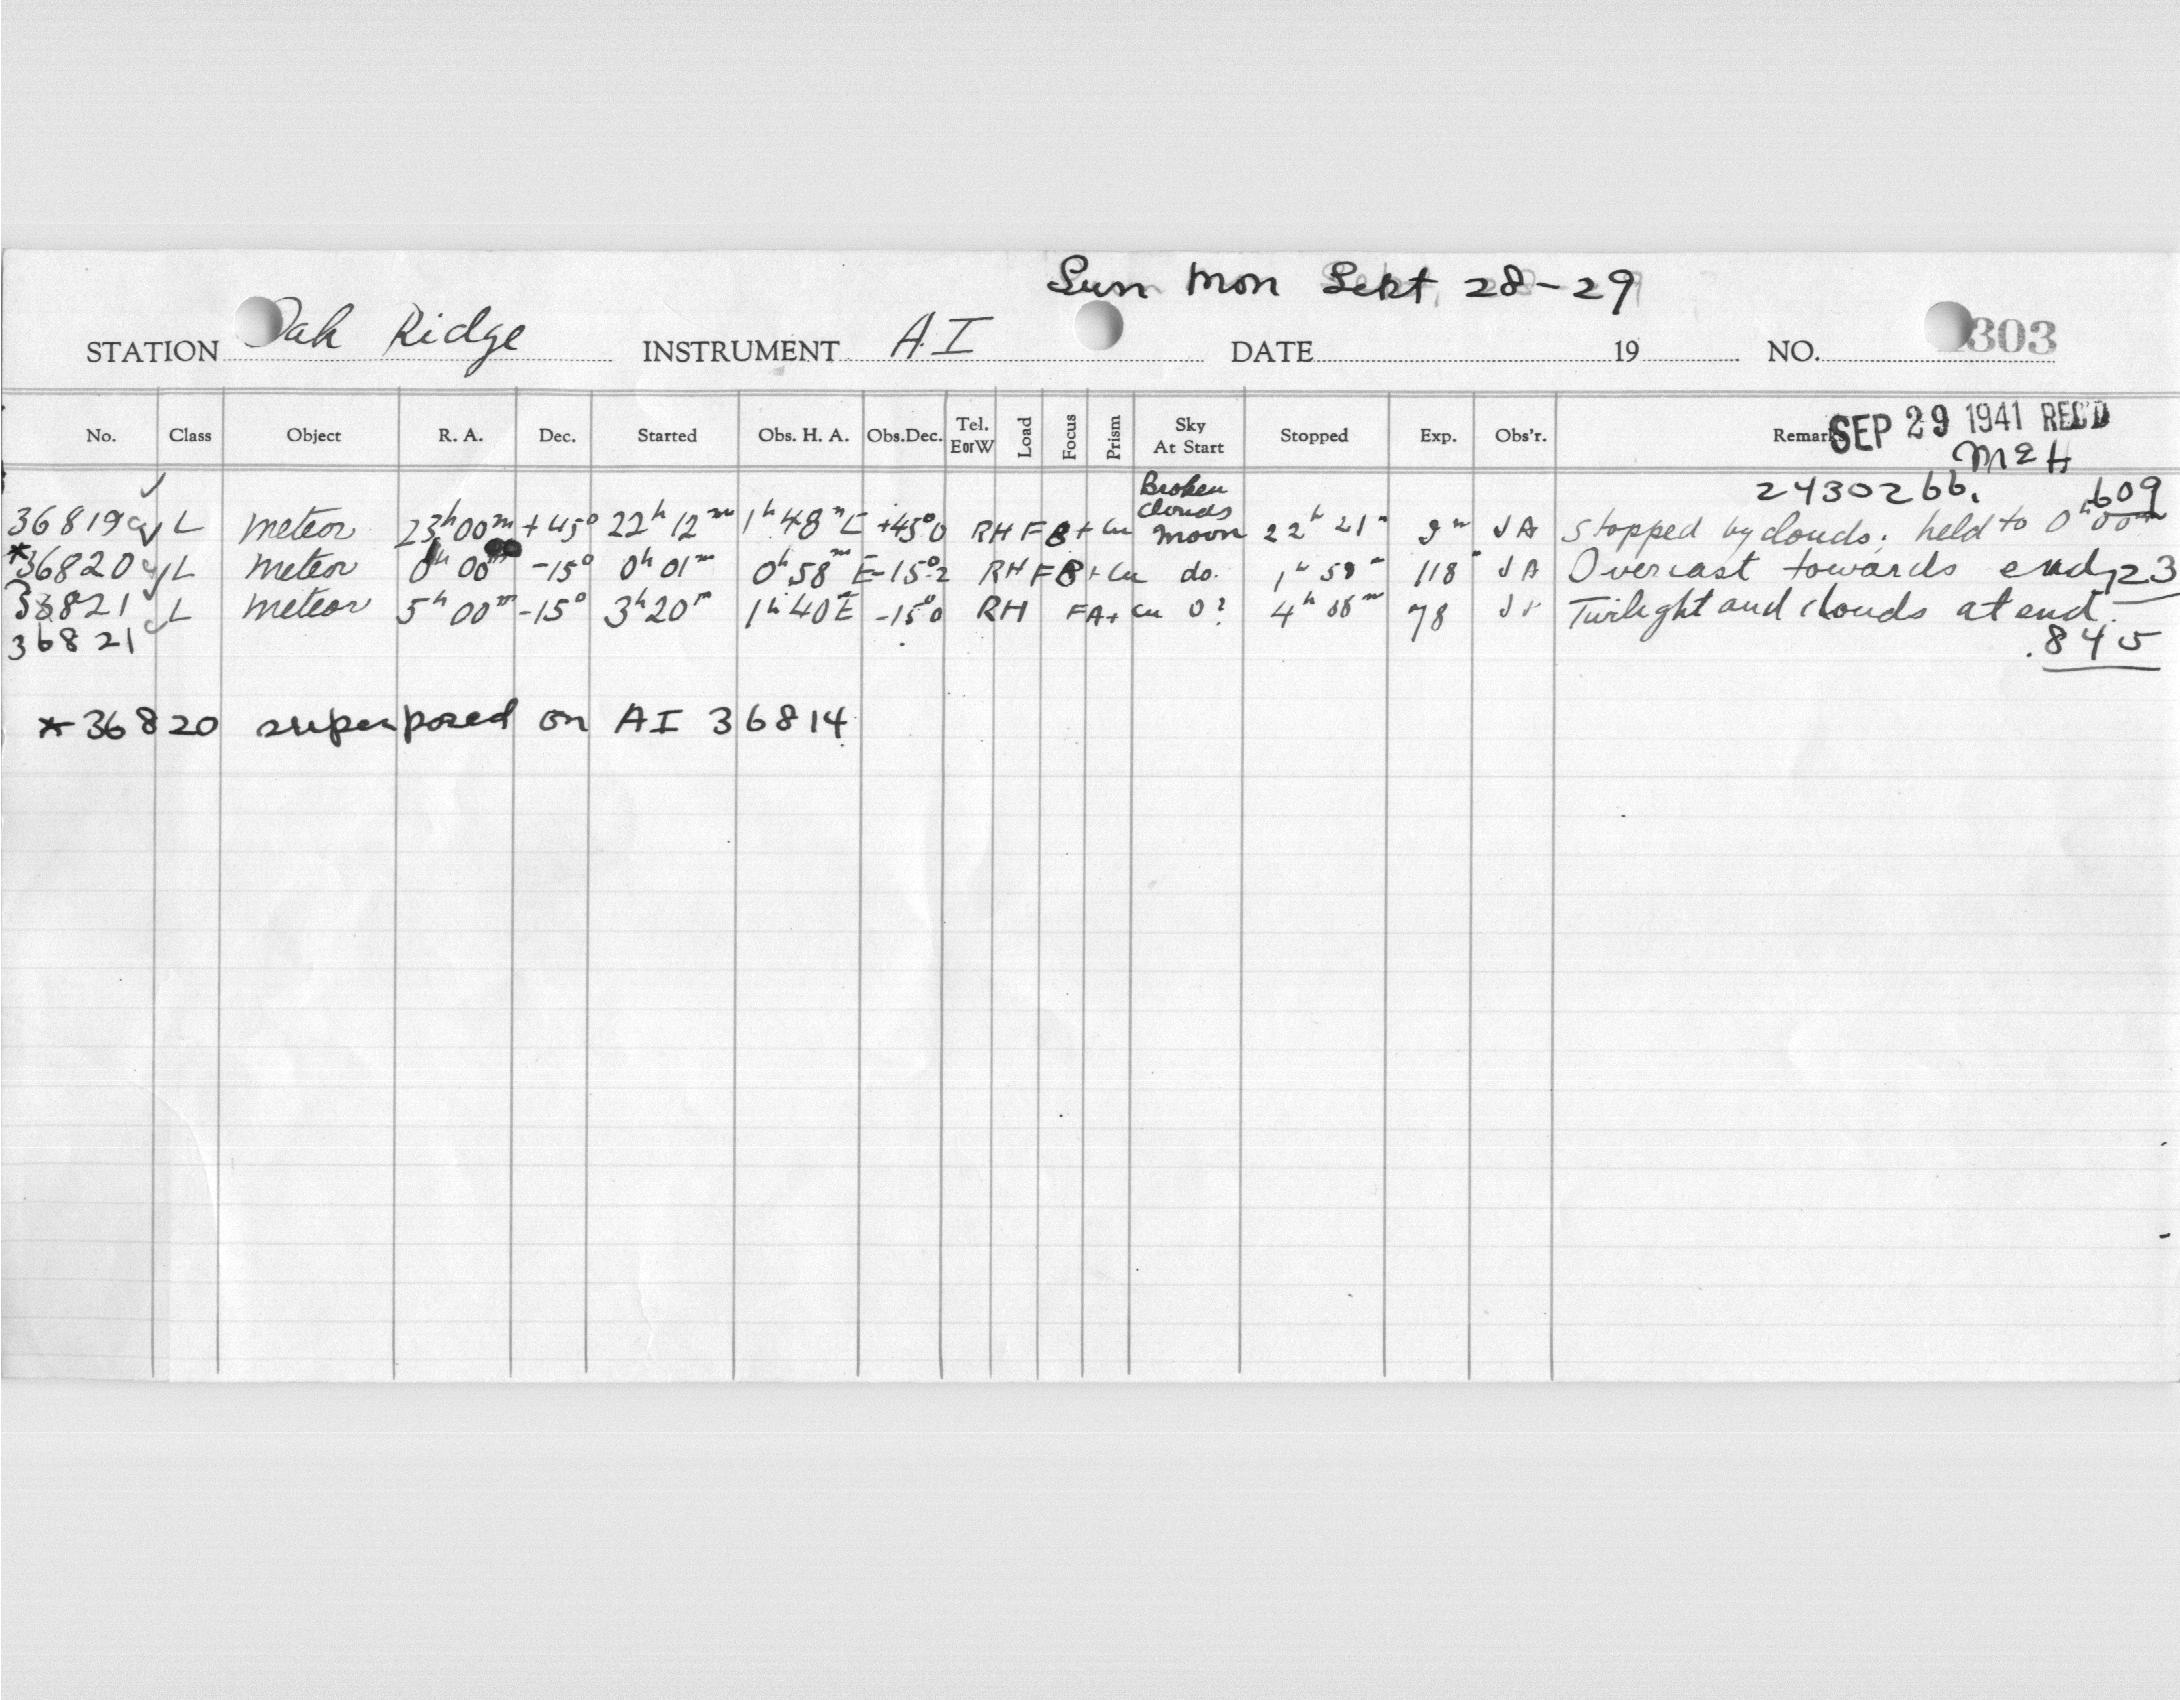 Sun Mon Sept 28-29
STATION Oak Ridge INSTRUMENT AI DATE 19 NO. 303
No. Class Object R. A. Dec. Started Obs. H. A. Obs.Dec. Tel. E or W Load Focus Prism Sky At Start Stopped Exp. Obs'r. Remarks SEP 29 1941 REC'D
MEH
2430266. .609
36819 L meteor 23h00m +45° 22h 12m 1h 48m E +45°0 RH F B + Cu Broken clouds moon 22h 21m 9m JA Stopped by clouds; held to 0h00m
*36820 L meteor 0h 00m -15° 0h 01m 0h 58m E -15°.2 RH F B + Cu do. 1h 59m 118m JA Overcast towards end 723
36821 L meteor 5h 00m -15° 3h 20m 1h 40m E -15°0 RH FA+ Cu 0? 4h 78 Twilight and clouds at end.
36821 .845
*36820 superposed on AI 36814